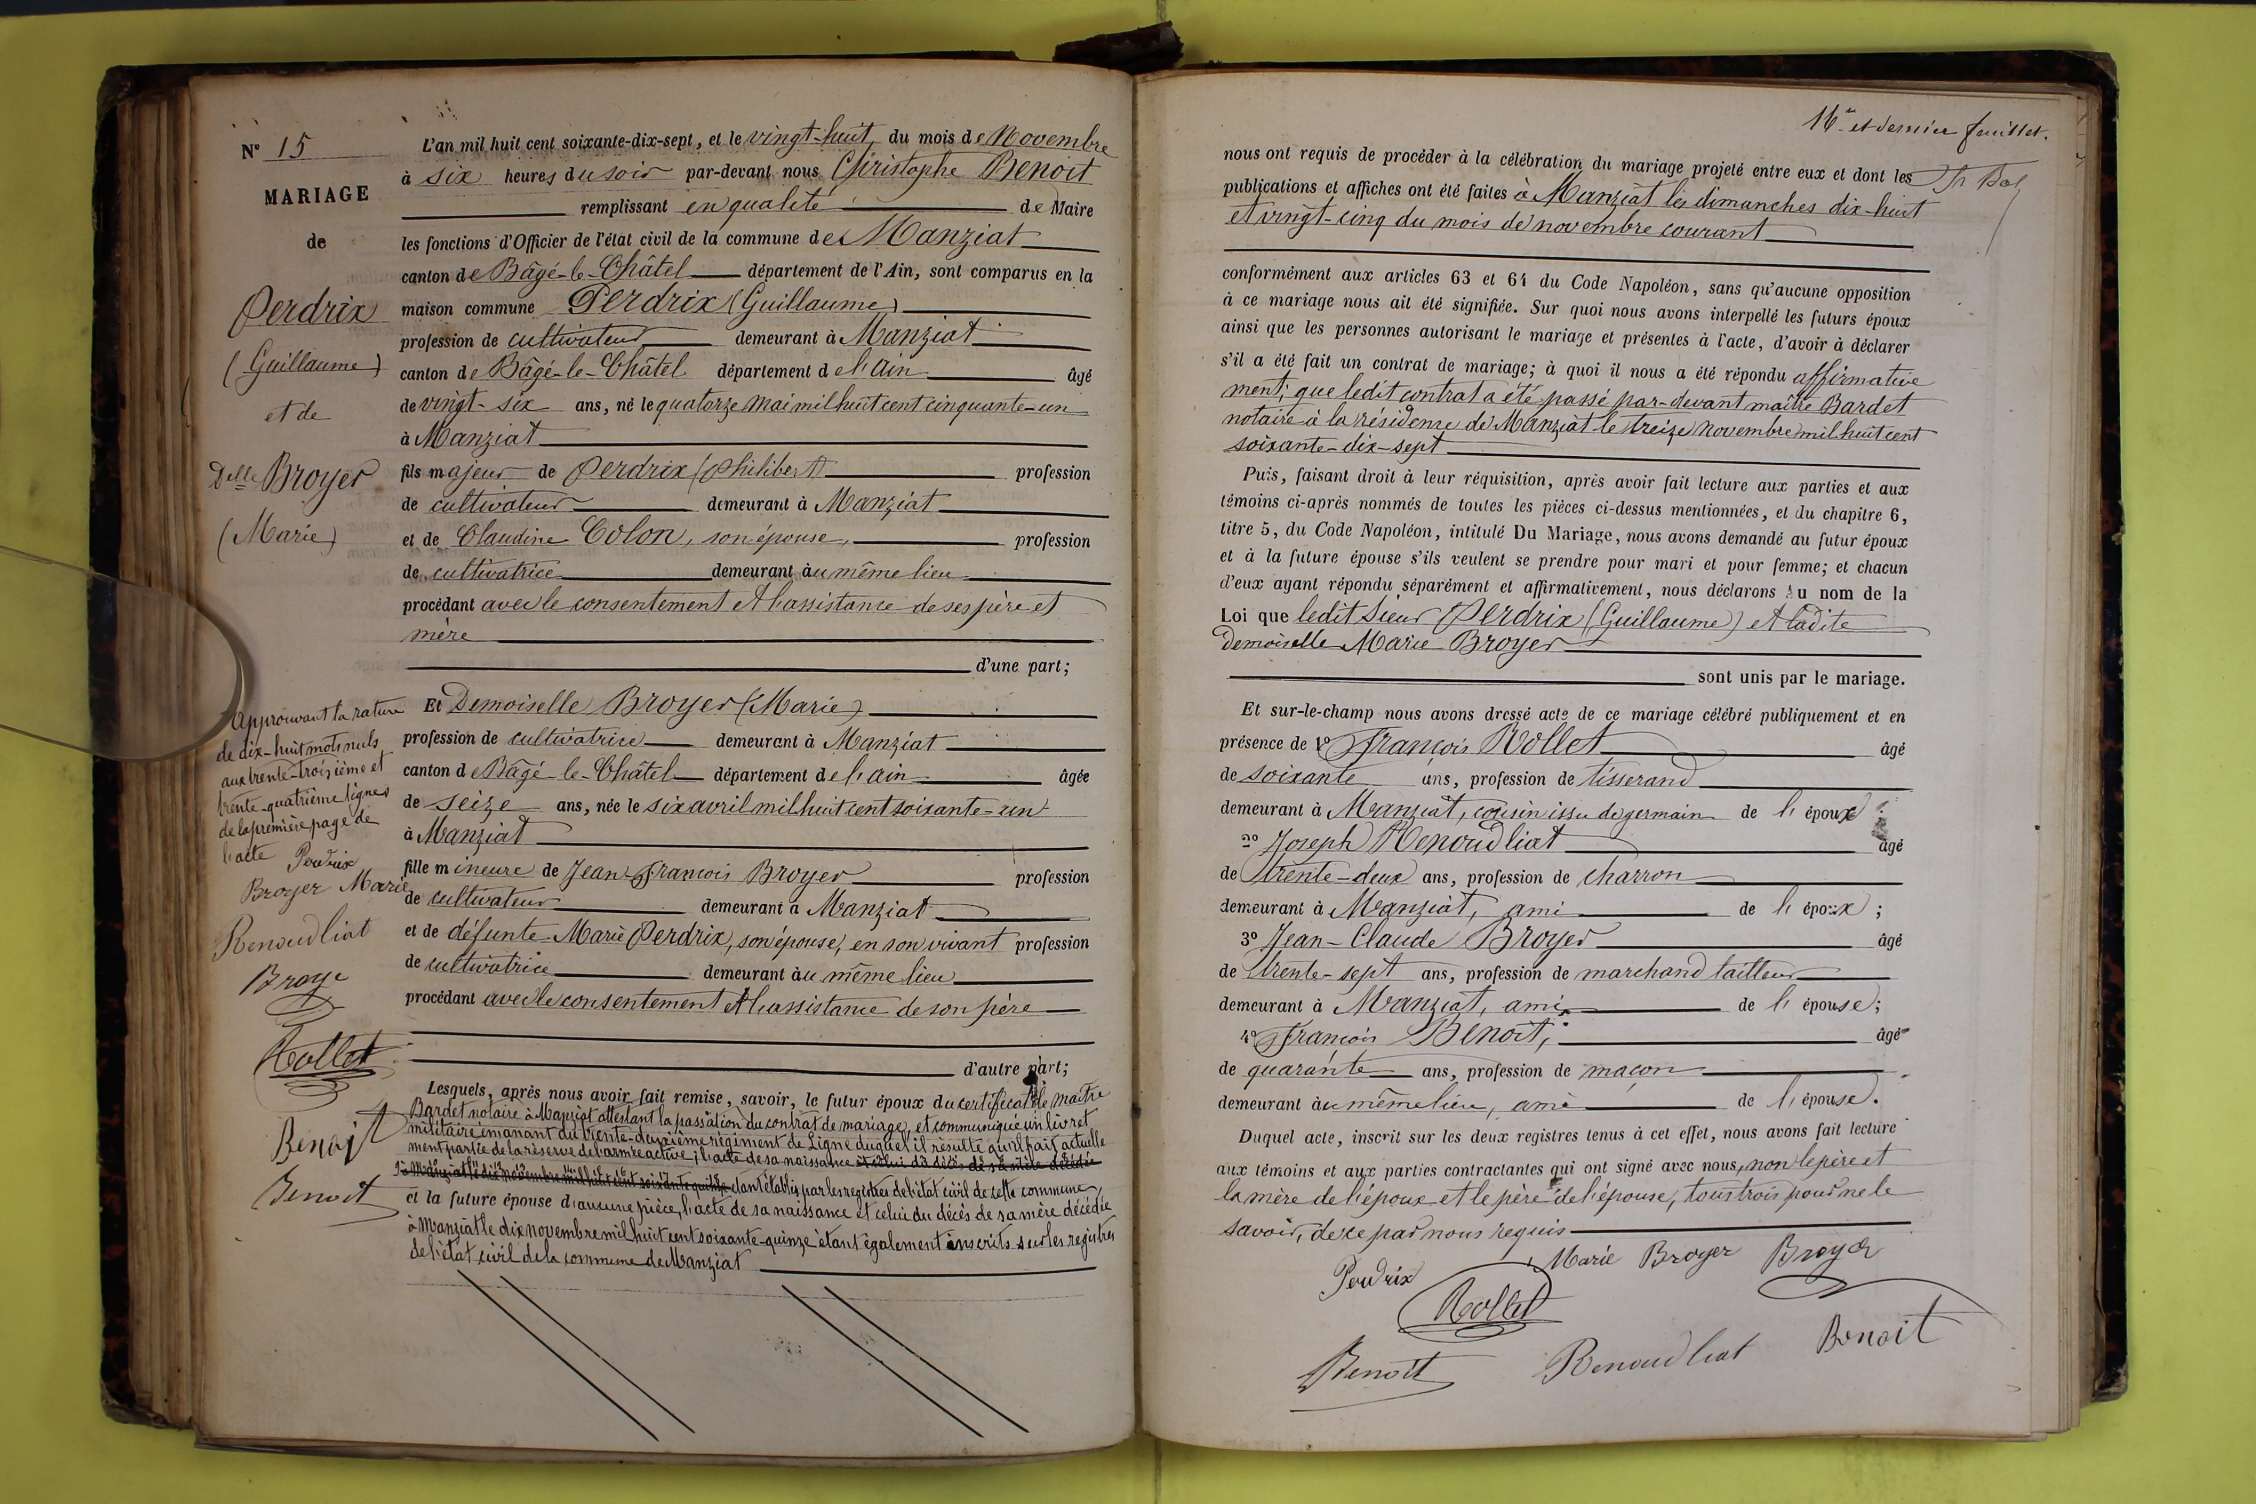 N° 15
MARIAGE
de
Perdrix
(Guillaume)
et de
Delle Broyer
(Marie)
Approuvant la rature
de dix-huit mots nuls
aux trente-troisième et
trente-quatrième lignes
de la première page de
l'acte Perdrix
Broyer Marie
Renoud liat
Broye
Rollet
Benoit
Benoit
L'an mil huit cent soixante-dix-sept, et le vingt-huit, du mois de Novembre
à six heures du soir par-devant nous Christophe Benoit
remplissant en qualité de Maire
les fonctions d'Officier de l'état civil de la commune de Manziat
canton de Bâgé-le-Châtel département de l'Ain, sont comparus en la
maison commune Perdrix (Guillaume)
profession de cultivateur demeurant à Manziat
canton de Bâgé-le-Châtel département de l'ain âgé
de vingt-six ans, né le quatorze mai mil huit cent cinquante-un
à Manziat
fils majeur de Perdrix (Philibert) profession
de cultivateur demeurant à Manziat
et de Claudine Colon, son épouse, profession
de cultivatrice demeurant au même lieu
procédant avec le consentement et l'assistance de ses père et
mère
d'une part;
Et Demoiselle Broyer (Marie)
profession de cultivatrice demeurant à Manziat
canton de Bâgé-le-Châtel département de l'ain âgée
de seize ans, née le six avril mil huit cent soixante-un
à Manziat
fille mineure de Jean-François Broyer profession
de cultivateur demeurant à Manziat
et de défunte Marie Perdrix, son épouse, en son vivant profession
de cultivatrice demeurant au même lieu
procédant avec le consentement et l'assistance de son père
d'autre part;
Lesquels, après nous avoir fait remise, savoir, le futur époux du certificat de maître
Bardet notaire à Manziat attestant la passation du contrat de mariage, et communiqué un livret
militaire émanant du trente-deuxième régiment de Ligne duquel il résulte qu'il fait actuelle
ment partie de la réserve de l'armée active; l'acte de sa naissance et celui du décès de sa mère décédée
à Manziat le dix novembre mil huit cent soixante quinze étant établis par les registres de l'état civil de cette commune,
et la future épouse d'aucune pièce, l'acte de sa naissance et celui du décès de sa mère décédée
à Manziat le dix novembre mil huit cent soixante-quinze étant également inscrits sur les registres
de l'état civil de la commune de Manziat
16e et dernier feuillet.
nous ont requis de procéder à la célébration du mariage projeté entre eux et dont les
publications et affiches ont été faites à Manziat les dimanches dix-huit
et vingt-cinq du mois de novembre courant
conformément aux articles 63 et 64 du Code Napoléon, sans qu'aucune opposition
à ce mariage nous ait été signifiée. Sur quoi nous avons interpellé les futurs époux
ainsi que les personnes autorisant le mariage et présentes à l'acte, d'avoir à déclarer
s'il a été fait un contrat de mariage; à quoi il nous a été répondu affirmative
ment; que ledit contrat a été passé par-devant maître Bardet
notaire à la résidence de Manziat le treize novembre mil huit cent
soixante-dix-sept
Puis, faisant droit à leur réquisition, après avoir fait lecture aux parties et aux
témoins ci-après nommés de toutes les pièces ci-dessus mentionnées, et du chapitre 6,
titre 5, du Code Napoléon, intitulé Du Mariage, nous avons demandé au futur époux
et à la future épouse s'ils veulent se prendre pour mari et pour femme; et chacun
d'eux ayant répondu séparément et affirmativement, nous déclarons Au nom de la
Loi que ledit Sieur Perdrix (Guillaume) et ladite
Demoiselle Marie Broyer
sont unis par le mariage.
Et sur-le-champ nous avons dressé acte de ce mariage célébré publiquement et en
présence de 1° François Rollet âgé
de soixante ans, profession de tisserand
demeurant à Manziat, cousin issu de germain de l'époux;
2° Joseph Renoud liat âgé
de trente-deux ans, profession de charron
demeurant à Manziat, ami de l'époux;
3° Jean-Claude Broyer âgé
de trente-sept ans, profession de marchand tailleur
demeurant à Manziat, ami de l'épouse;
4° François Benoit; âgé
de quarante ans, profession de maçon
demeurant au même lieu, ami de l'épouse.
Duquel acte, inscrit sur les deux registres tenus à cet effet, nous avons fait lecture
aux témoins et aux parties contractantes qui ont signé avec nous, non le père et
la mère de l'époux et le père de l'épouse, tous trois pour ne le
savoir, de ce par nous requis
Perdrix Marie Broyer Broyer
Rollet
Benoit Renoud liat Benoit